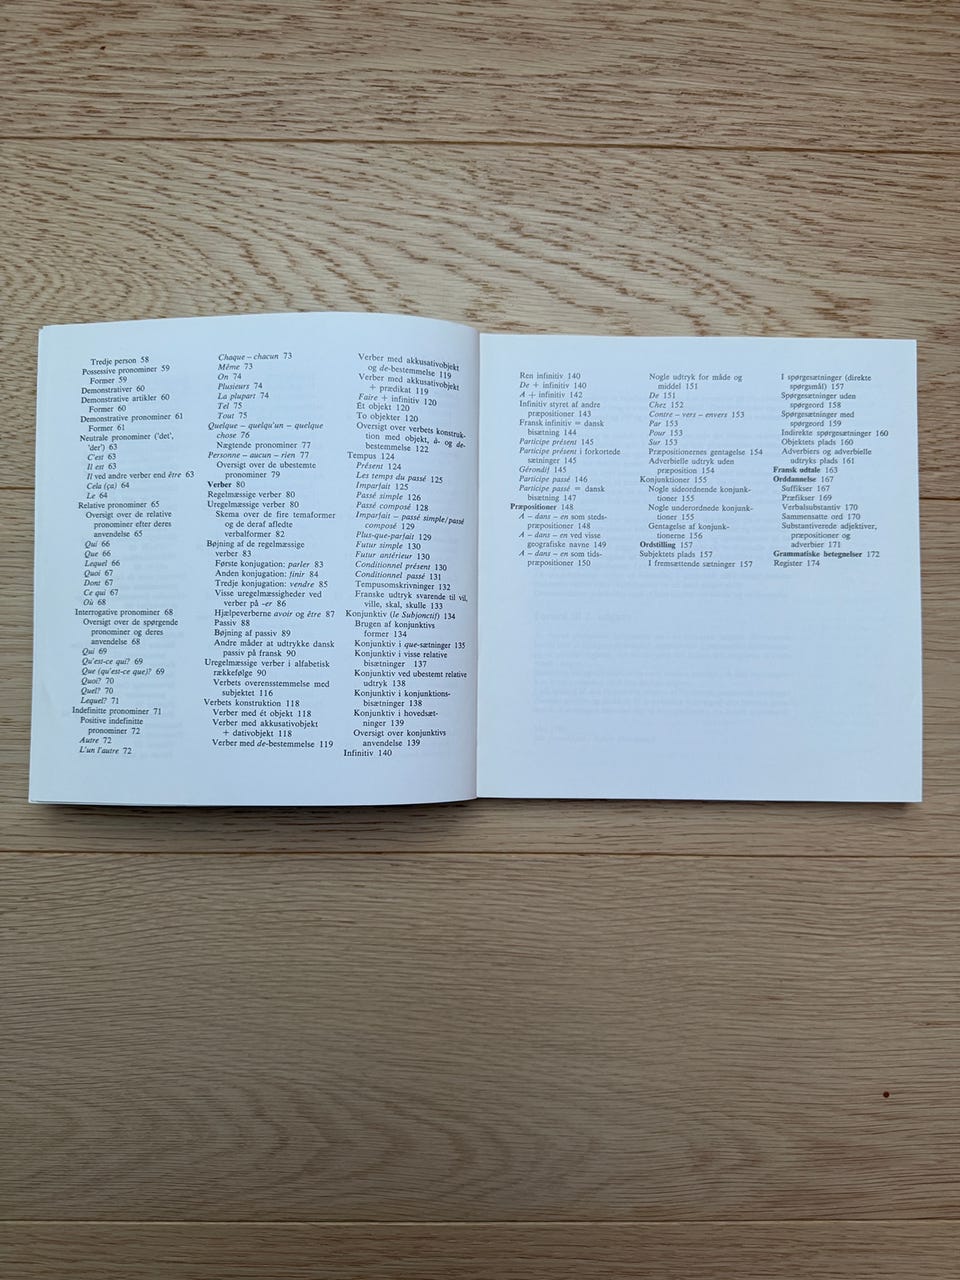 Tredje person 58
Possessive pronominer 59
Former 59
Demonstrativer 60
Demonstrative artikler 60
Former 60
Demonstrative pronominer 61
Former 61
Neutrale pronominer ('det',
'der') 63
C'est 63
Il est 63
Il ved andre verber end être 63
Cela (ça) 64
Le 64
Relative pronominer 65
Oversigt over de relative
pronominer efter deres
anvendelse 65
Qui 66
Que 66
Lequel 66
Quoi 67
Dont 67
Ce qui 67
Où 68
Interrogative pronominer 68
Oversigt over de spørgende
pronominer og deres
anvendelse 68
Qui 69
Qu'est-ce qui? 69
Que (qu'est-ce que)? 69
Quoi? 70
Quel? 70
Lequel? 71
Indefinitte pronominer 71
Positive indefinitte
pronominer 72
Autre 72
L'un l'autre 72
Chaque – chacun 73
Même 73
On 74
Plusieurs 74
La plupart 74
Tel 75
Tout 75
Quelque – quelqu'un – quelque
chose 76
Nægtende pronominer 77
Personne – aucun – rien 77
Oversigt over de ubestemte
pronominer 79
Verber 80
Regelmæssige verber 80
Uregelmæssige verber 80
Skema over de fire temaformer
og de deraf afledte
verbalformer 82
Bøjning af de regelmæssige
verber 83
Første konjugation: parler 83
Anden konjugation: finir 84
Tredje konjugation: vendre 85
Visse uregelmæssigheder ved
verber på -er 86
Hjælpeverberne avoir og être 87
Passiv 88
Bøjning af passiv 89
Andre måder at udtrykke dansk
passiv på fransk 90
Uregelmæssige verber i alfabetisk
rækkefølge 90
Verbets overensstemmelse med
subjektet 116
Verbets konstruktion 118
Verber med ét objekt 118
Verber med akkusativobjekt
+ dativobjekt 118
Verber med de-bestemmelse 119
Verber med akkusativobjekt
og de-bestemmelse 119
Verber med akkusativobjekt
+ prædikat 119
Faire + infinitiv 120
Ét objekt 120
To objekter 120
Oversigt over verbets konstruk-
tion med objekt, à- og de-
bestemmelse 122
Tempus 124
Présent 124
Les temps du passé 125
Imparfait 125
Passé simple 126
Passé composé 128
Imparfait – passé simple/passé
composé 129
Plus-que-parfait 129
Futur simple 130
Futur antérieur 130
Conditionnel présent 130
Conditionnel passé 131
Tempusomskrivninger 132
Franske udtryk svarende til vil,
ville, skal, skulle 133
Konjunktiv (le Subjonctif) 134
Brugen af konjunktivs
former 134
Konjunktiv i que-sætninger 135
Konjunktiv i visse relative
bisætninger 137
Konjunktiv ved ubestemt relative
udtryk 138
Konjunktiv i konjunktions-
bisætninger 138
Konjunktiv i hovedsæt-
ninger 139
Oversigt over konjunktivs
anvendelse 139
Infinitiv 140
Ren infinitiv 140
De + infinitiv 140
A + infinitiv 142
Infinitiv styret af andre
præpositioner 143
Fransk infinitiv = dansk
bisætning 144
Participe présent 145
Participe présent i forkortede
sætninger 145
Gérondif 145
Participe passé 146
Participe passé = dansk
bisætning 147
Præpositioner 148
A – dans – en som steds-
præpositioner 148
A – dans – en ved visse
geografiske navne 149
A – dans – en som tids-
præpositioner 150
Nogle udtryk for måde og
middel 151
De 151
Chez 152
Contre – vers – envers 153
Par 153
Pour 153
Sur 153
Præpositionernes gentagelse 154
Adverbielle udtryk uden
præposition 154
Konjunktioner 155
Nogle sideordnende konjunk-
tioner 155
Nogle underordnede konjunk-
tioner 155
Gentagelse af konjunk-
tionerne 156
Ordstilling 157
Subjektets plads 157
I fremsættende sætninger 157
I spørgesætninger (direkte
spørgsmål) 157
Spørgesætninger uden
spørgeord 158
Spørgesætninger med
spørgeord 159
Indirekte spørgesætninger 160
Objektets plads 160
Adverbiers og adverbielle
udtryks plads 161
Fransk udtale 163
Orddannelse 167
Suffikser 167
Præfikser 169
Verbalsubstantiv 170
Sammensatte ord 170
Substantiverede adjektiver,
præpositioner og
adverbier 171
Grammatiske betegnelser 172
Register 174